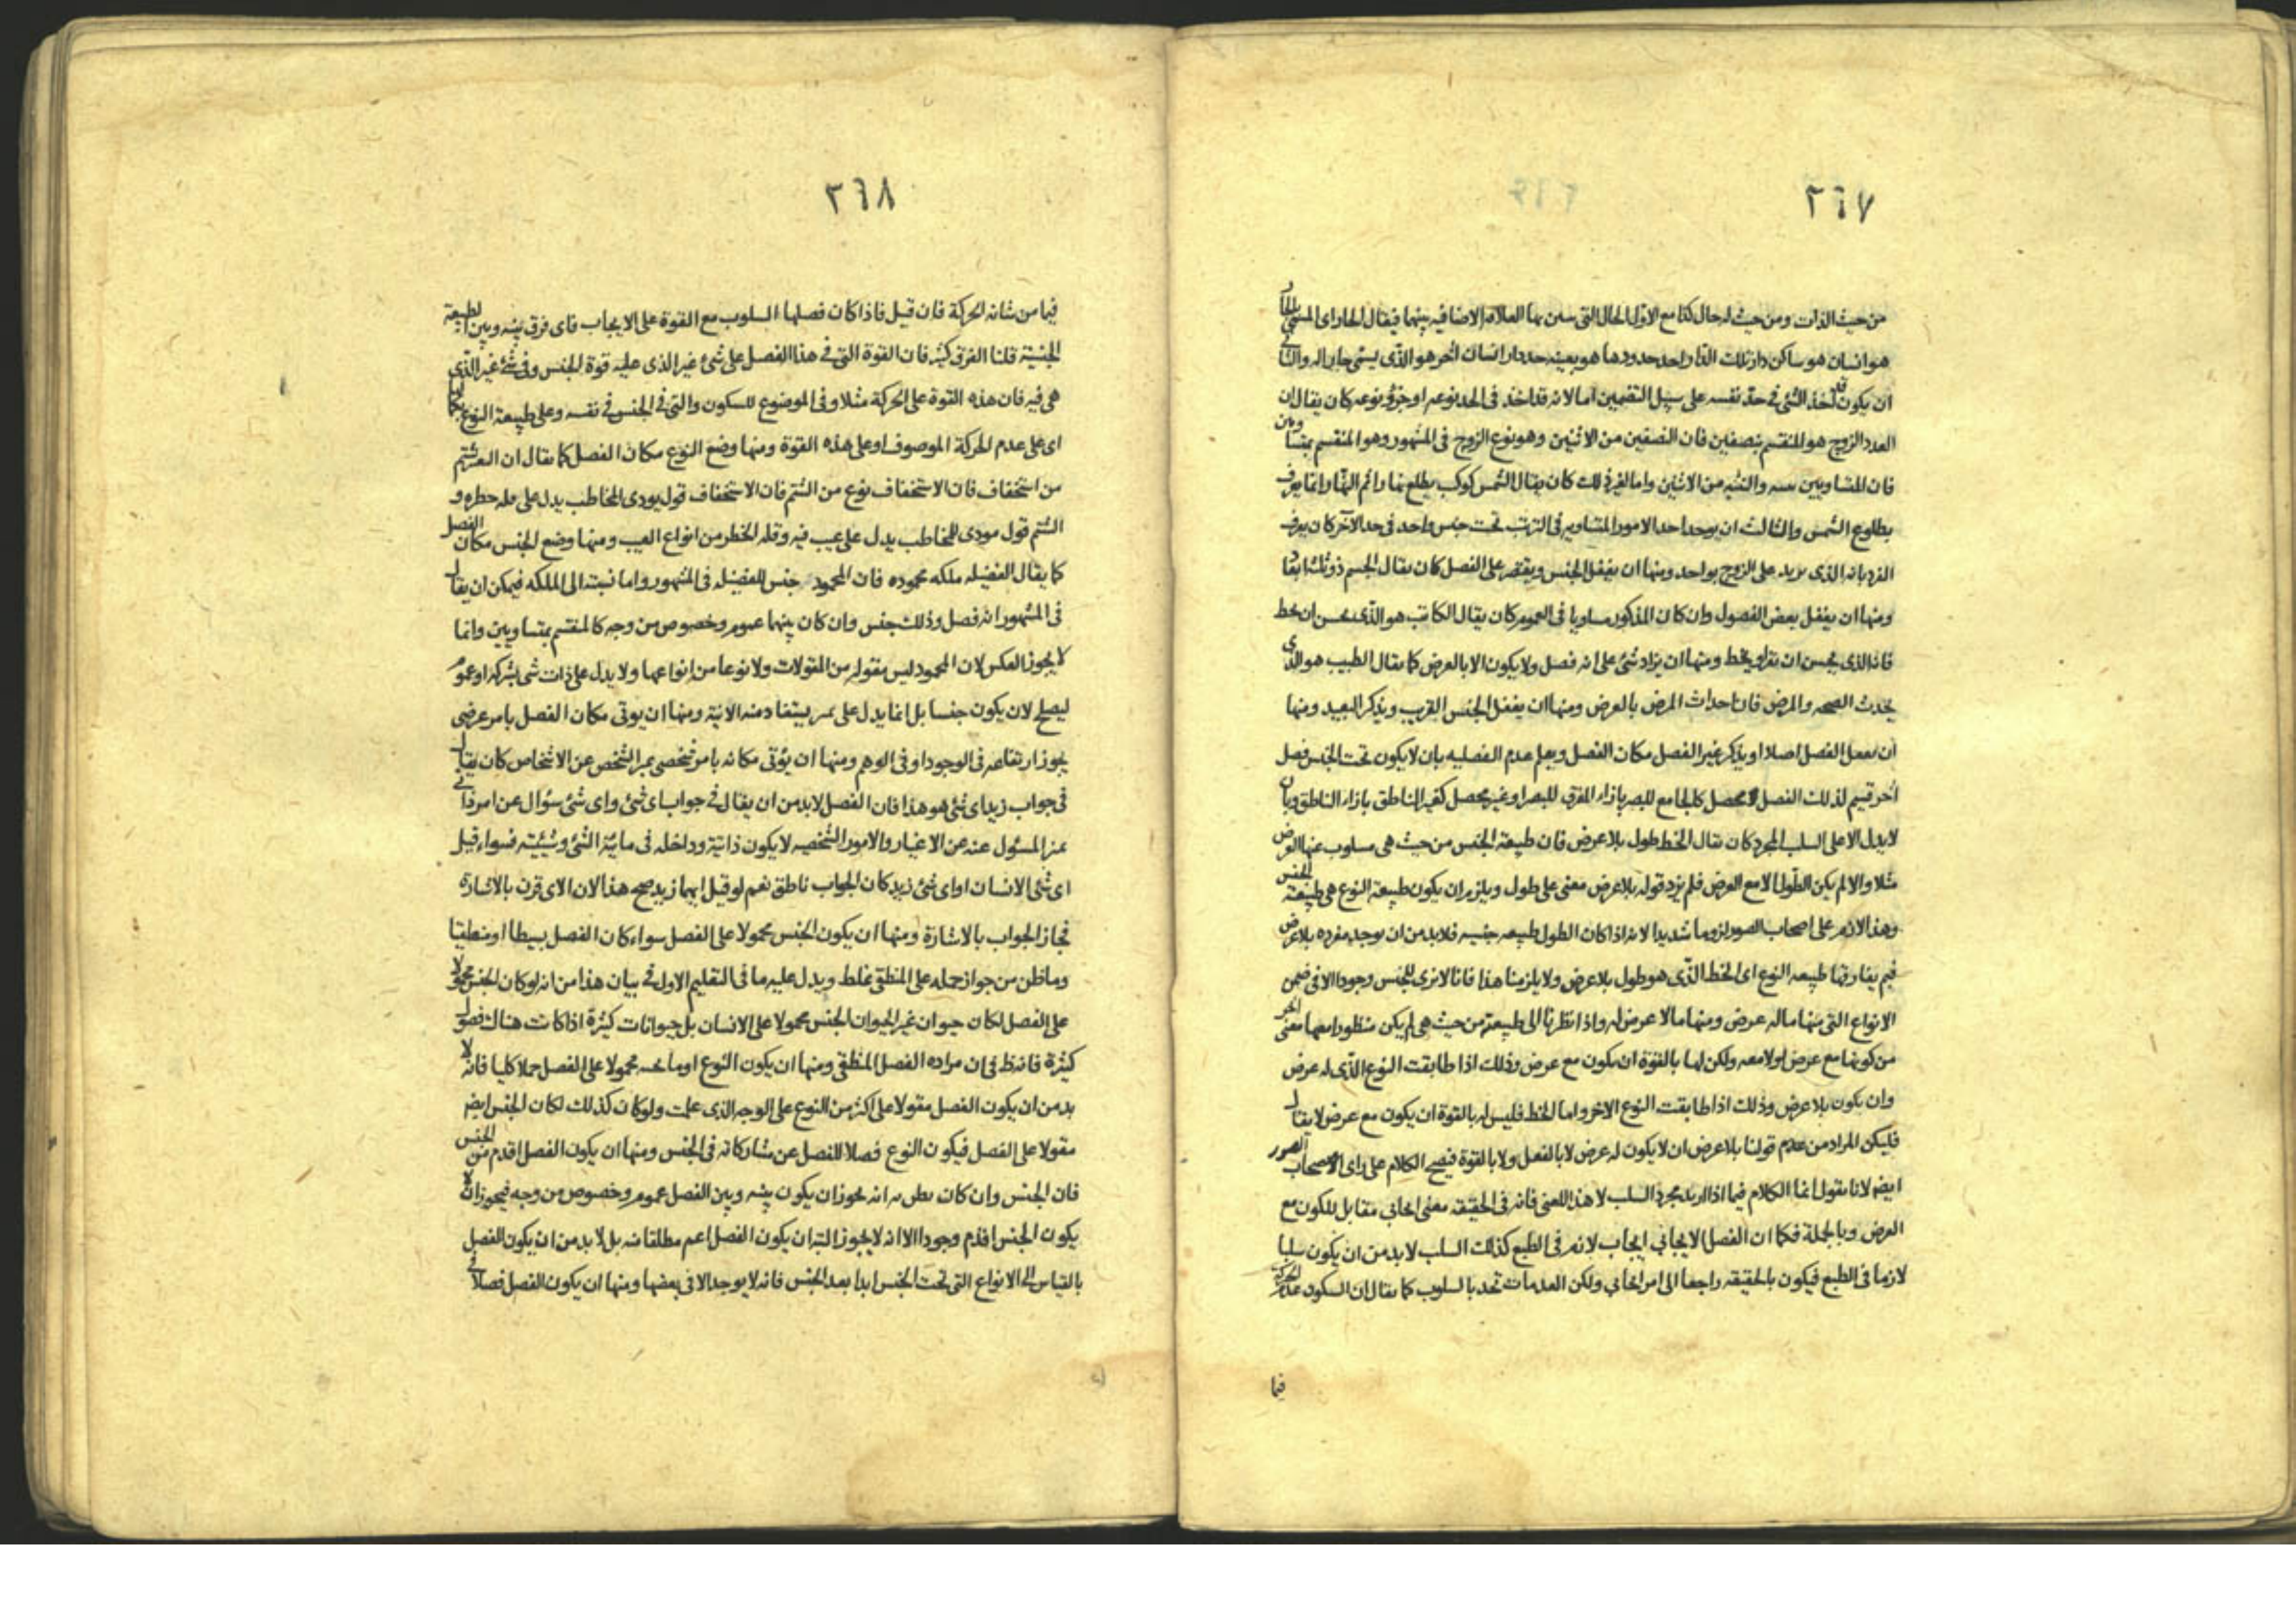 ٢٦٧
من حيث الذات ومن حيث له حال كذا مع الاول الحال التى بها العلاقة الاضافيه بينهما فيقال الجار اى المسمى بالجار
هو انسان هو ساكن دار تلك الدار احد حدودها هو بعينه حد دار انسان اخر هو الذى يسمى جار اله والثانى
ان يكون قد اخذ الشئ فى حد نفسه على سبيل التضمين اما لانه قد اخذ فى الحد نوعه او جزؤ نوعه كان يقال ان
العدد الزوج هو المنقسم بنصفين فان النصفين من الاثنين وهو نوع الزوج فى المشهور وهو المنقسم بمتساويين
فان المتساويين والتثنيه من الاثنين واما لغير ذلك كان يقال الشمس كوكب يطلع نهارا ثم النهار انما يعرف
بطلوع الشمس والثالث ان يوجد احد الامور المتساويه فى الترتب تحت جنس واحد فى حد الاخر كان يعرف
الفرد بانه الذى يزيد على الزوج بواحد ومنها ان يغفل الجنس ويقتصر على الفصل كان يقال الجسم ذو ثلث ابعاد
ومنها ان يغفل بعض الفصول وان كان المذكور مساويا فى العموم كان يقال الكاتب هو الذى يحسن ان يخط
فانه الذى يحسن ان يقرا ويخط ومنها ان يزاد شئ على انه فصل ولا يكون الا بالعرض كما يقال الطبيب هو الذى
يحدث الصحه والمرض فان احداث المرض بالعرض ومنها ان يغفل الجنس القريب ويذكر البعيد ومنها
ان يغفل الفصل اصلا او يذكر غير الفصل مكان الفصل ويعلم عدم الفصليه بان لا يكون تحت الجنس فصل
اخر قسيم لذلك الفصل محصل كالجامع للبصر بازاء المفرق للبصر او غير محصل كغير الناطق بازاء الناطق وبان
لا يدل الا على السلب المجرد كان يقال الخط طول بلا عرض فان طبيعة الجنس من حيث هى مسلوب عنها العرض
مثلا والا لم يكن الطول الا مع العرض فلم يزد قوله بلا عرض معنى على طول ويلزم ان يكون طبيعة النوع هى طبيعة الجنس
وهذا لازم على اصحاب الصور لزوما شديدا لانه اذا كان الطول طبيعه جنسيه فلا بد من ان يوجد مفرده بلا عرض
فيم يفارقها طبيعه النوع اى الخط الذى هو طول بلا عرض ولا يلزمنا هذا فانا لا نرى للجنس وجودا الا فى ضمن
الانواع التى منها ماله عرض ومنها ما لا عرض له واذا نظرنا الى طبيعته من حيث هى لم يكن منظورا معها معنى اخر
من كونها مع عرض او لا معه ولكن لها بالقوة ان يكون مع عرض وذلك اذا طابقت النوع الذى له عرض
وان يكون بلا عرض وذلك اذا طابقت النوع الاخر واما الخط فليس له بالقوة ان يكون مع عرض لا يقال
فليكن المراد من قولنا بلا عرض ان لا يكون له عرض لا بالفعل ولا بالقوة فيصح الكلام على راى اصحاب الصور
ايضه لانا نقول انما الكلام فيما اذا اريد مجرد السلب لا هذا المعنى فانه فى الحقيقه معنى ايجابى مقابل للكون مع
العرض وبالجملة فكما ان الفصل الايجابى ايجاب لازم فى الطبع كذلك السلب لا بد من ان يكون سلبا
لازما فى الطبع فيكون بالحقيقه راجعا الى امر ايجابى ولكن العدمات تحد بالسلوب كما يقال ان السكون عدم الحركة
فيما
٢٦٨
فيما من شانه الحركة فان قيل فاذا كان فصلها السلوب مع القوة على الايجاب فاى فرق بينه وبين الطبيعة
الجنسية قلنا الفرق كثير فان القوة التى فى هذا الفصل على شئ غير الذى عليه قوة الجنس وفى شئ غير الذى
هى فيه فان هذه القوة على الحركة مثلا وفى الموضوع للسكون والتى فى الجنس فى نفسه وعلى طبيعة النوع
اى على عدم الحركة الموصوف او على هذه القوة ومنها وضع النوع مكان الفصل كما يقال ان شتم
من استخفاف فان الاستخفاف نوع من الشتم فان الاستخفاف قول يودى المخاطب يدل على قله خطره و
الشتم قول مودى للمخاطب يدل على عيب فيه وقله الخطر من انواع العيب ومنها وضع الجنس مكان الفصل
كما يقال الفضيله ملكه محموده فان المحمود جنس للفضيله فى المشهور واما نسبته الى الملكه فيمكن ان يقال
فى المشهور انه فصل وذلك جنس وان كان بينهما عموم وخصوص من وجه كالمنقسم بمتساويين وانما
لا يجوز العكس لان المحمود ليس مقوله من المقولات ولا نوعا من انواعها ولا يدل على ذات شى بشركه او عموم
ليصلح لان يكون جنسا بل انما يدل على يستفاد منه الانية ومنها ان يوتى مكان الفصل بامر عرضى
يجوز ارتفاعه فى الوجود او فى الوهم ومنها ان يؤتى مكانه بامر شخصى يميز الشخص عن الاشخاص كان يقال
فى جواب زيد اى شئ هو هذا فان الفصل لا بد من ان يقال فى جواب اى شئ واى شئ سؤال عن امر ذاتى
يميز المسئول عنه عن الاغيار والامور الشخصيه لا يكون ذاتية وداخله فى مائية الشئ وشيئيته فسواء قيل
اى شئ الانسان او اى شئ زيد كان الجواب ناطق نعم لو قيل ايهما زيد صح هذا لان الاى قرن بالاشارة
فجاز الجواب بالاشارة ومنها ان يكون الجنس محمولا على الفصل سواء كان الفصل بسيطا او منطقيا
وما ظن من جواز حمله على المنطقى غلط ويدل عليه ما فى التعليم الاول فى بيان هذا من انه لو كان الجنس محمولا
على الفصل لكان حيوان غير الحيوان الجنس محمولا على الانسان بل حيوانات كثيرة اذا كانت هناك فصول
كثيرة فانه ظ فى ان مراده الفصل المنطقى ومنها ان يكون النوع او ما تحته محمولا على الفصل حملا كليا فانه لا
بد من ان يكون الفصل مقولا على اكثر من النوع على الوجه الذى علمت ولو كان كذلك لكان الجنس ايضه
مقولا على الفصل فيكون النوع فصلا للفصل عن مشاركاته فى الجنس ومنها ان يكون الفصل اقدم من الجنس
فان الجنس وان كان يظن به انه يجوز ان يكون بينه وبين الفصل عموم وخصوص من وجه فيجوز ان لا
يكون الجنس اقدم وجودا الا انه لا يجوز البته ان يكون الفصل اعم مطلقا منه بل لا بد من ان يكون الفصل
بالقياس الى الانواع التى تحت الجنس ابدا بعد الجنس فانه لا يوجد الا فى بعضها ومنها ان يكون الفصل فصلا